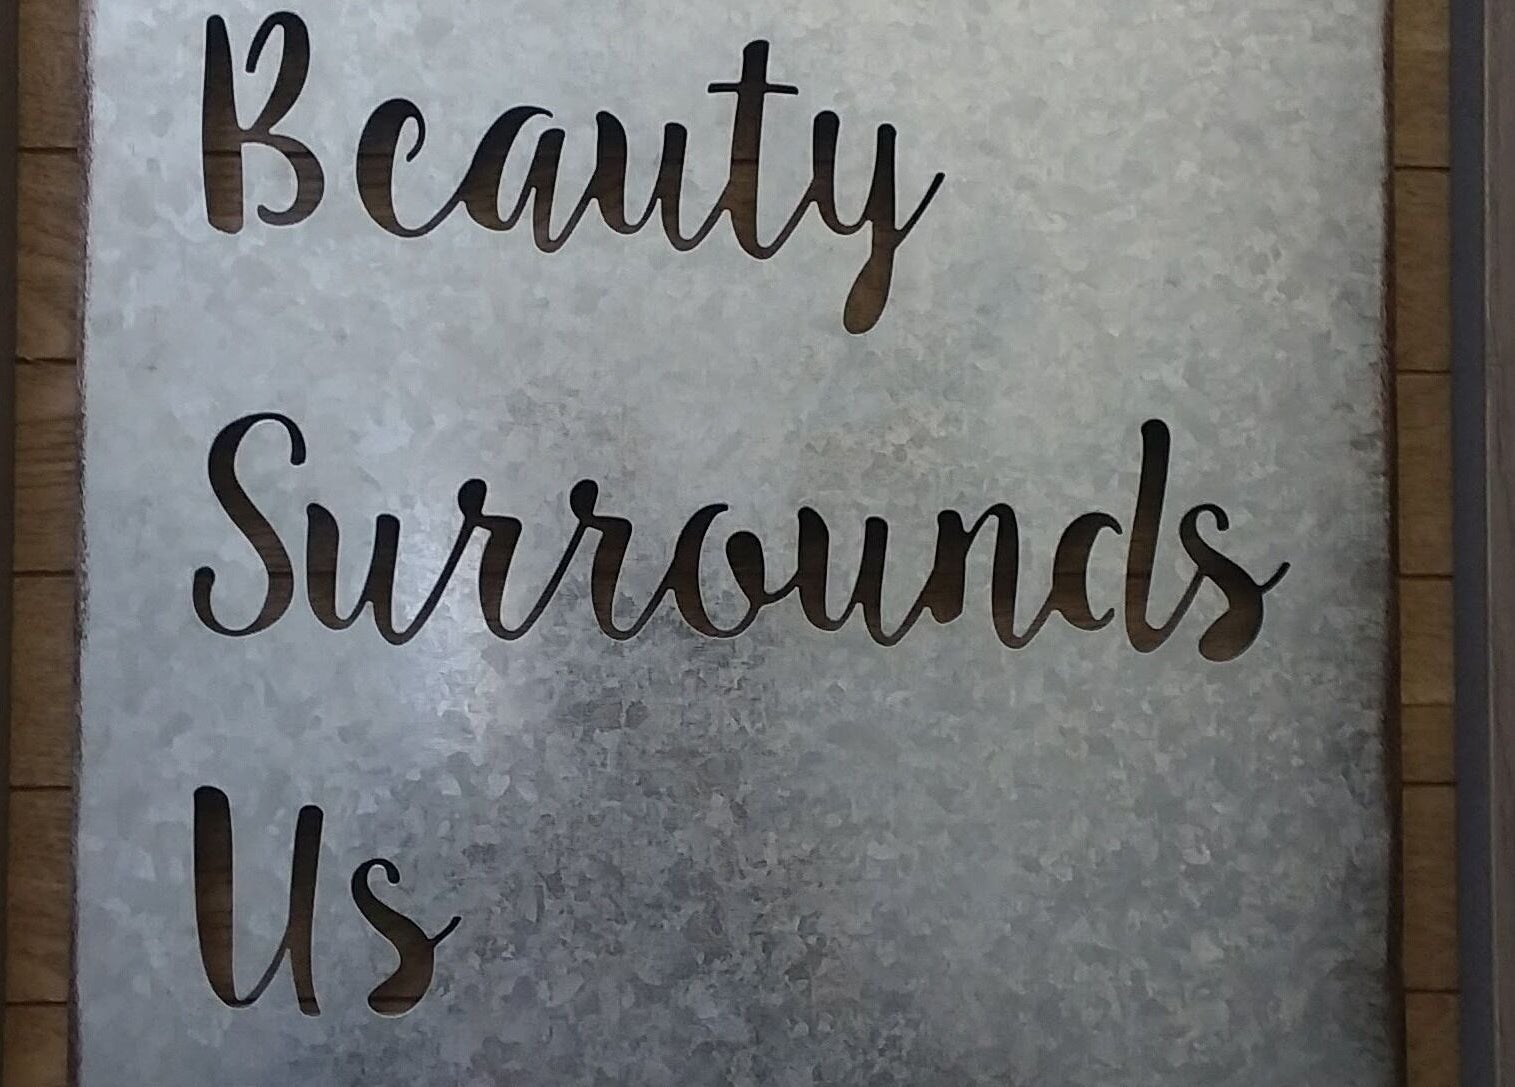 Beauty
Surrounds
Us